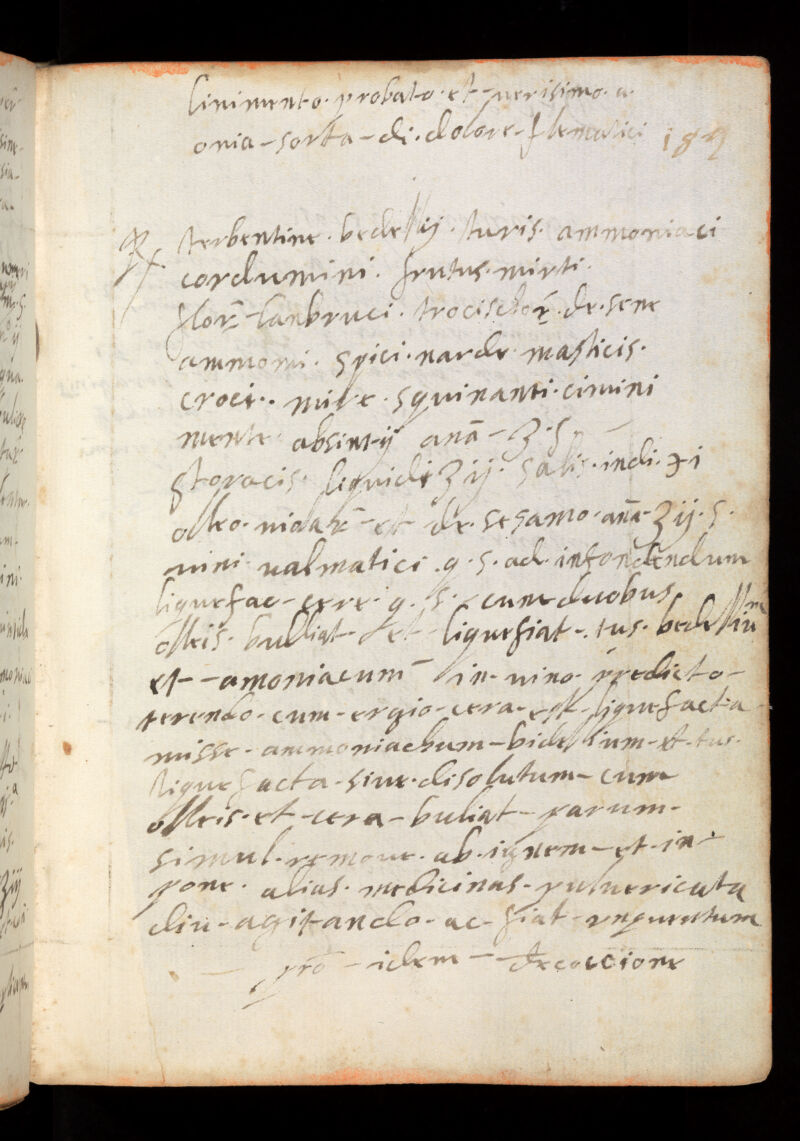 linimento · probato · et · uerisimo · a
onia - sorta - di · dolore - flematici 189
℞ terbentine · bedellij · turis · ammoniaci
cordumini · frutus · mirti ·
flor~ - lanbruci · trociscor~ · de · sene
ammomi · spici · narde · masticis ·
croci · · mire · squinanti · cimini
mente · absintij ana - ʒ · s
storacis · liquidi ʒ ij · salis · indi · ℈ i
olleo · - et de · sesamo · ana ʒ ij · s ·
uini ualmatici · q · s · ad · infondendum
liquefac - cere · q · s · cum duobus
olleis · bulliat - et - liquefiat - · tus · bedellium
et - amoniacum - in · uino · predicto -
terendo · cum · ergio · cera · est · liquefacta -
misse · ammoniachum - bidellium - et · tus ·
liquefacta · siue · disolutum - cum
olleis · et - cera - buliat - parum -
simul · remoue · ab · ignem - et · in -
pone · alias · medicinas · puluericata
diu - agitando - ac - fiat - unguentum
pro~ - idem - decoccione